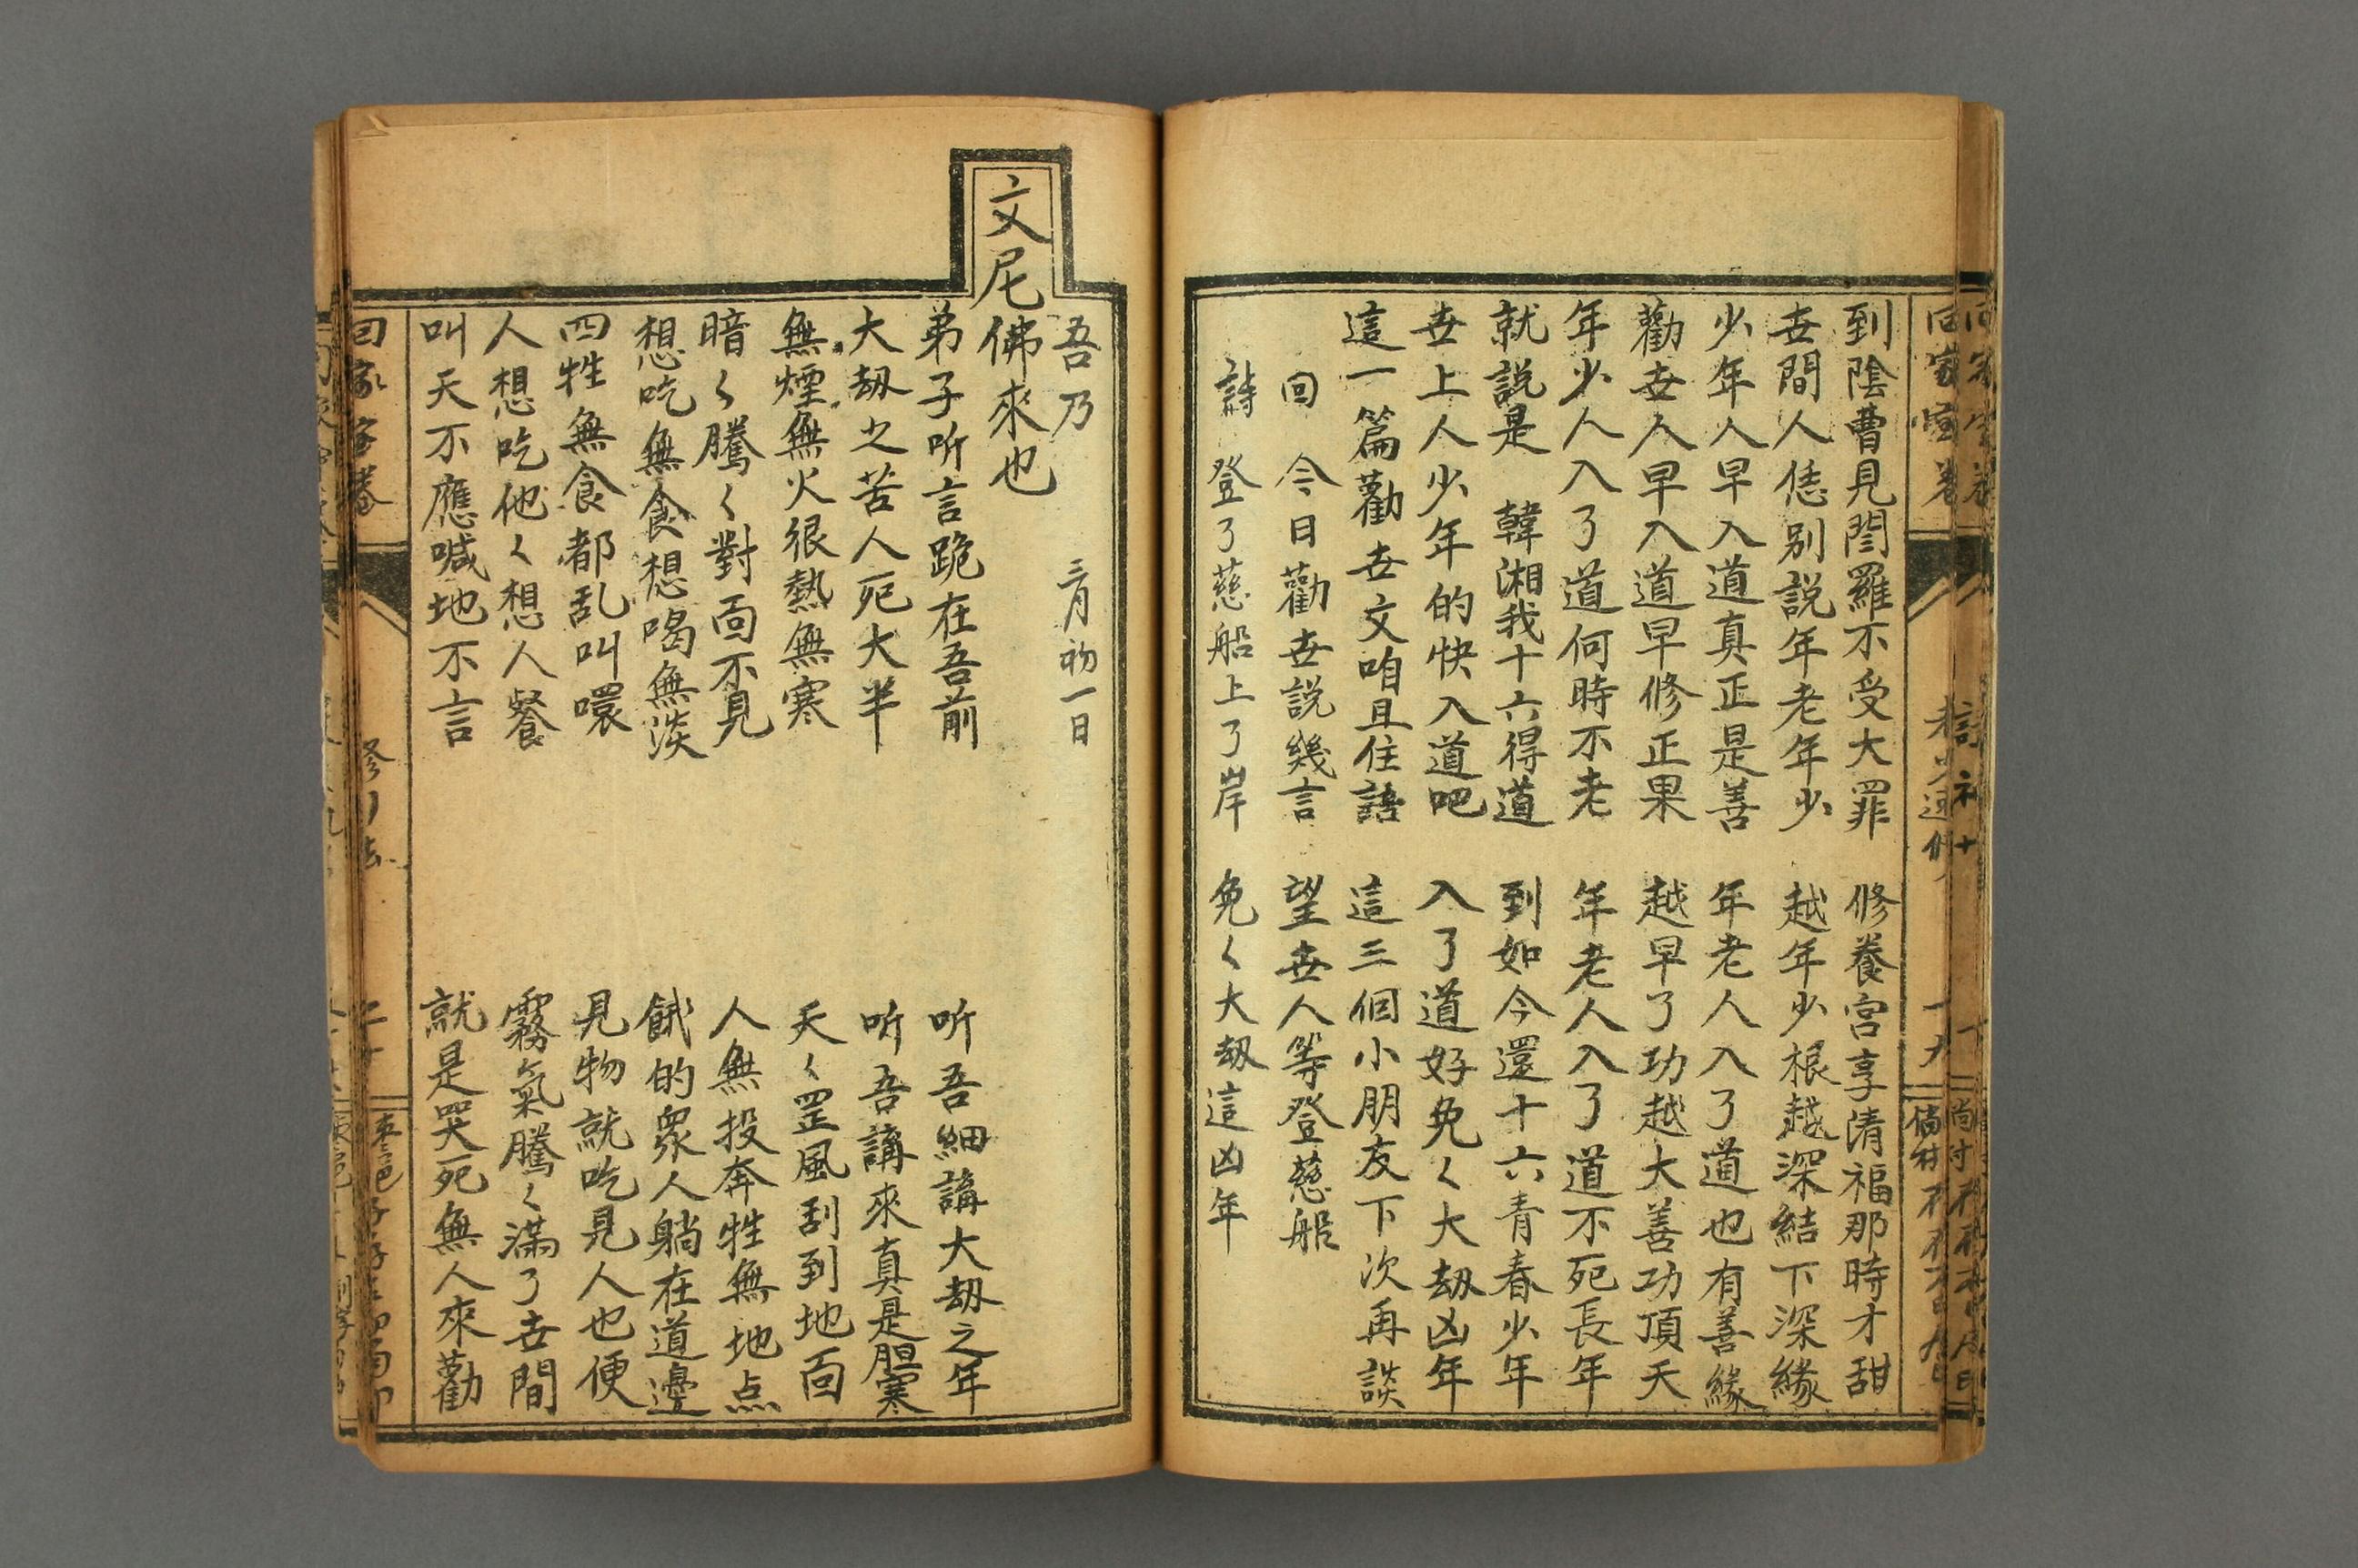 到陰曹見閻羅不受大罪　修養宮享清福那時才甜
世間人恁别説年老年少　越年少根越深結下深緣
少年人早入道真正是善　年老人入了道也有善緣
勸世人早入道早修正果　越早了功越大善功頂天
年少人入了道何時不老　年老人入了道不死長年
就説是　韓湘我十六得道　到如今還十六青春少年
世上人少年的快入道吧　入了道好免〻大刼凶年
這一篇勸世文咱且住語　這三個小朋友下次再談
回　今日勸世説幾言　望世人等登慈船
詩　登了慈船上了岸　免〻大刼這凶年
吾乃　三月初一日
文尼佛來也
弟子听言跪在吾前　听吾細講大刼之年
大刼之苦人死大半　听吾講來真是胆寒
無煙無火很熱無寒　天〻罡風刮到地面
暗〻騰〻對面不見　人無投奔牲無地点
想吃無食想喝無淡　餓的眾人躺在道邊
四牲無食都乱叫喚　見物就吃見人也便
人想吃他〻想人餐　霧氣騰〻滿了世間
叫天不應喊地不言　就是哭死無人來勸
回家寶卷